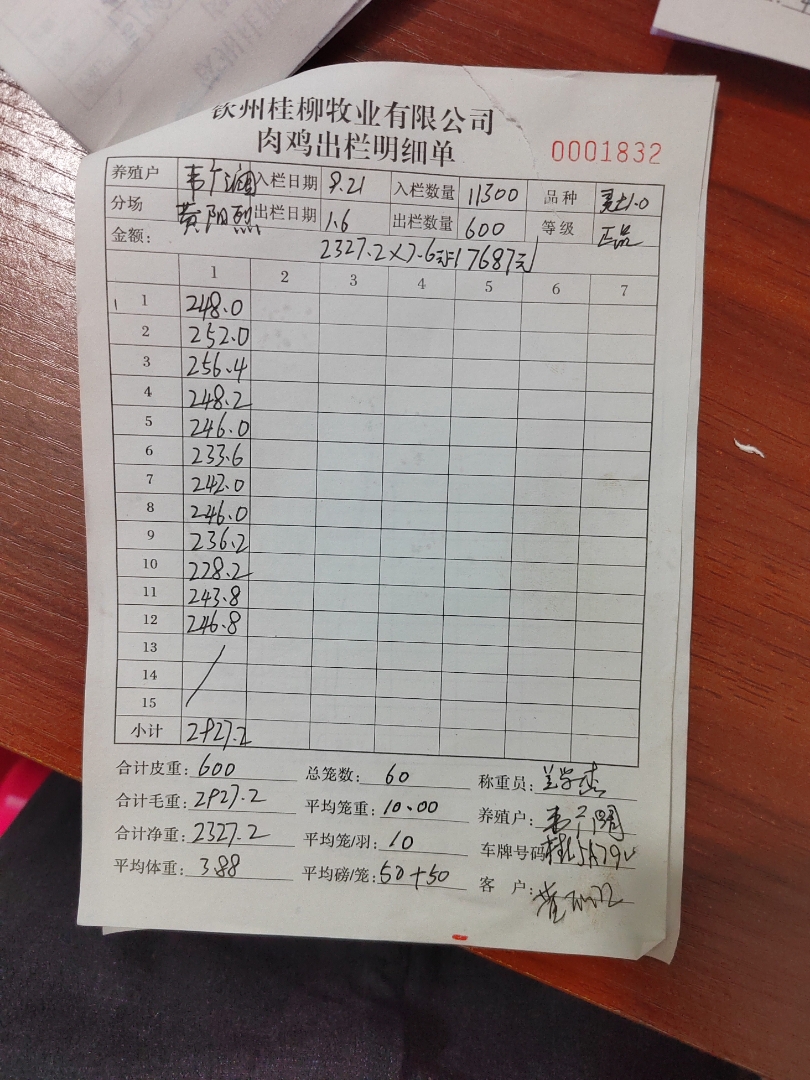 钦州桂柳牧业有限公司
肉鸡出栏明细单
0001832
养殖户 入栏日期 9.21 入栏数量 11300 品种
分场 黄阳熙 出栏日期 1.6 出栏数量 600 等级 正品
金额: 2327.2×7.6元=17687元
1 2 3 4 5 6 7
1 248.0
2 252.0
3 256.4
4 248.2
5 246.0
6 233.6
7 242.0
8 246.0
9 236.2
10 228.2
11 243.8
12 246.8
13
14
15
小计 2927.2
合计皮重: 600 总笼数: 60 称重员:
合计毛重: 2927.2 平均笼重: 10.00 养殖户:
合计净重: 2327.2 平均笼/羽: 10 车牌号码
平均体重: 3.88 平均磅/笼: 50+50 客户: